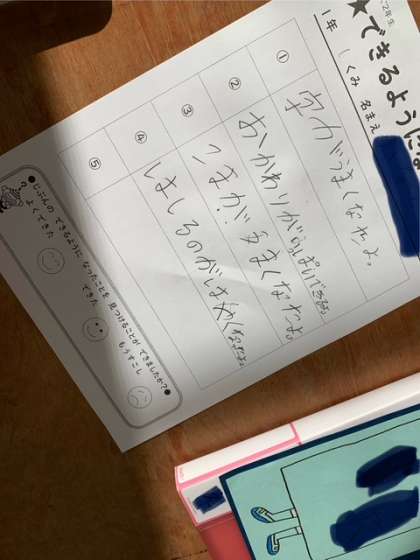 2年生
★できるようにな
1年 1くみ 名まえ
① 字がうまくなたよ。
② おかわりがいっぱいできる。
③ こまがうまくなたよ。
④ はしるのがはやくなたよ。
⑤
●じぶんの できるように なったことを 見つけることが できましたか?●
よくできた できた もうすこし